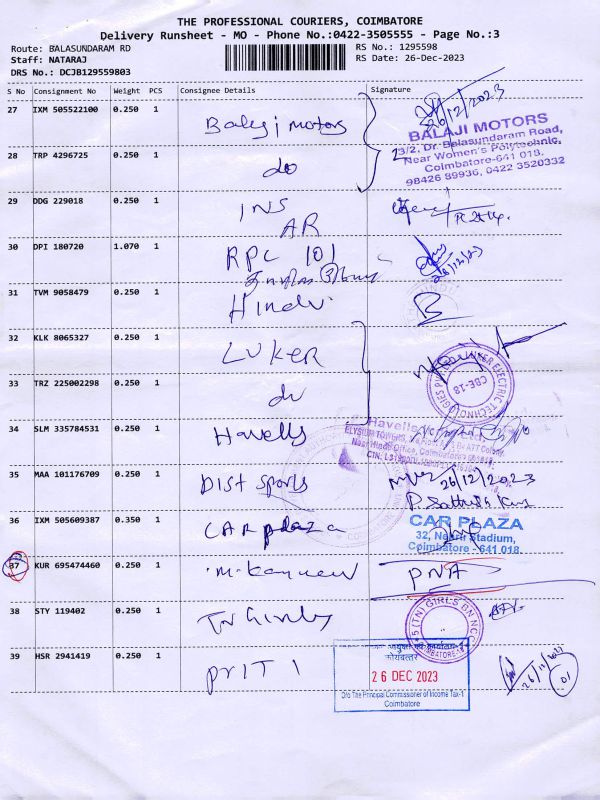 THE PROFESSIONAL COURIERS, COIMBATORE
Delivery Runsheet - MO - Phone No.:0422-3505555 - Page No.:3
Route: BALASUNDARAM RD
RS No.: 1295598
Staff: NATARAJ
RS Date: 26-Dec-2023
DRS No.: DCJB129559803
S No Consignment No Weight PCS Consignee Details Signature
27 IXM 505522100 0.250 1 Balaji motors 26/12/2023
BALAJI MOTORS
23/2, Dr. Balasundaram Road,
Near Women's Polytechnic,
Coimbatore-641 018.
98426 89936, 0422 3520332
28 TRP 4296725 0.250 1 do
29 DDG 229018 0.250 1 INS
AR
30 DPI 180720 1.070 1 RPC 101
26/12/23
31 TVM 9058479 0.250 1 Hindu
32 KLK 8065327 0.250 1 LUKER
CBE-18
33 TRZ 225002298 0.250 1 do
34 SLM 335784531 0.250 1 Havells
Havells
ELYSIUM TOWERS,
Near Hindu Office, Coimbatore
35 MAA 101176709 0.250 1 DIST sports 26/12/2023
P. Sathish Kumar
36 IXM 505609387 0.350 1 CAR plaza
CAR PLAZA
32, Nehru Stadium,
Coimbatore - 641 018.
37 KUR 695474460 0.250 1 PNA
38 STY 119402 0.250 1 TN Girls
5 (TN) GIRLS BN NCC
COIMBATORE-18
39 HSR 2941419 0.250 1 PrIT 1
कोयंबत्तूर
26 DEC 2023
O/o The Principal Commissioner of Income Tax-1
Coimbatore
26/12/2023
01